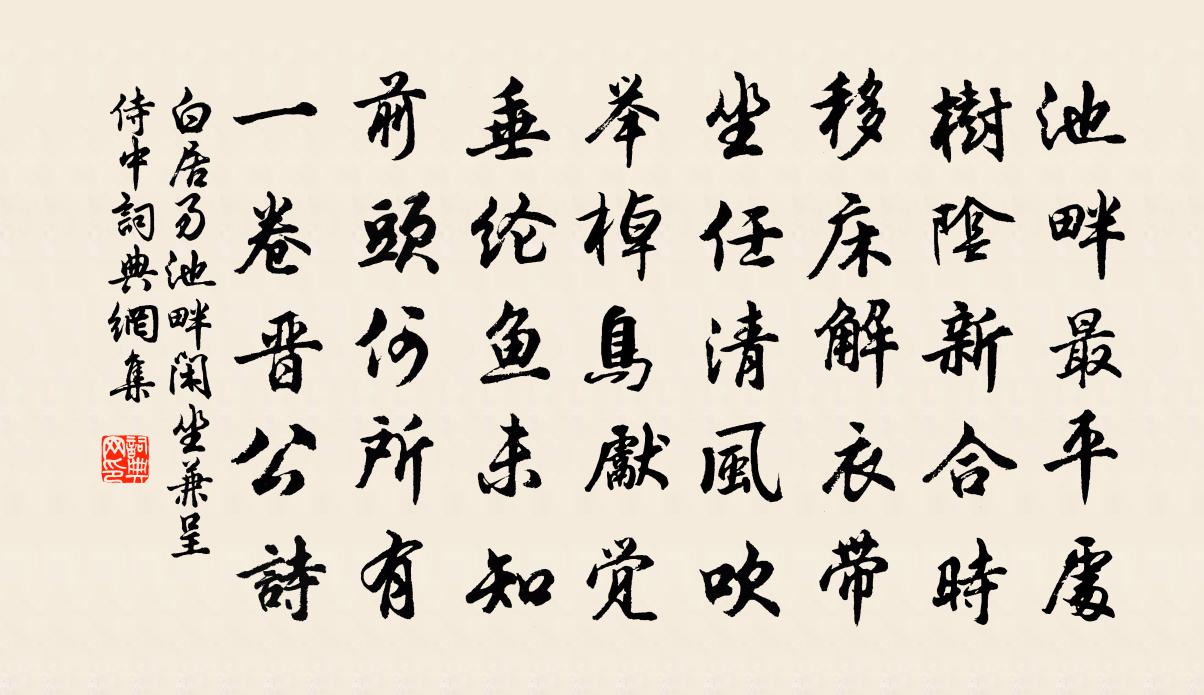 池畔最平處
樹陰新合時
移床解衣帶
坐任清風吹
举棹鳥獻觉
垂纶鱼未知
前頭何所有
一卷晋公詩
白居易池畔闲坐兼呈
侍中詞典網集
詞典
网印